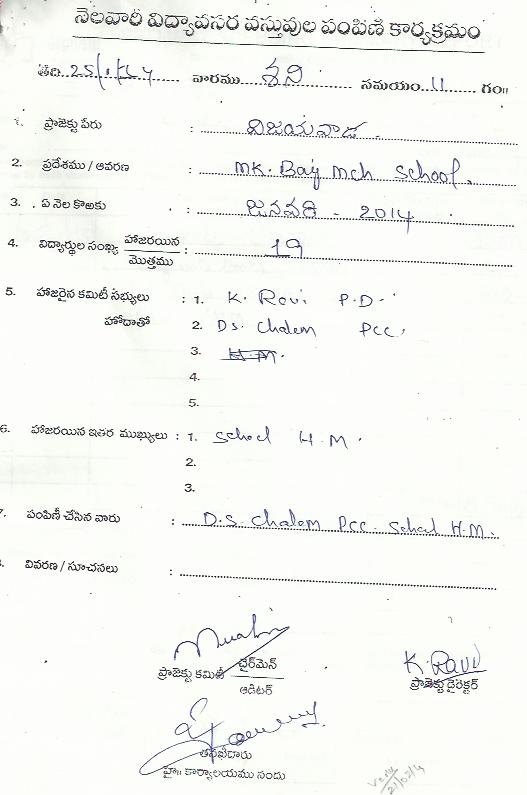 నెలవారీ విద్యావసర వస్తువుల పంపిణి కార్యక్రమం
తేది..25/1/14...... వారము...శని...... సమయం..11...గం॥
1. ప్రాజెక్టు పేరు : విజయవాడ.
2. ప్రదేశము / ఆవరణ : MK. Baig Mch School.
3. ఏ నెల కొఱకు : జనవరి - 2014
4. విద్యార్థుల సంఖ్య హాజరయిన : 19
మొత్తము
5. హాజరైన కమిటీ సభ్యులు : 1. K. Ravi P.D.
హోదాతో 2. D.S. Chalem PCC.
3. H.M.
4.
5.
6. హాజరయిన ఇతర ముఖ్యులు : 1. School H.M.
2.
3.
7. పంపిణీ చేసిన వారు : D.S. Chalem PCC. School H.M.
8. వివరణ / సూచనలు :
ప్రాజెక్టు కమిటీ చైర్మెన్
ఆడిటర్
K. Ravi
ప్రాజెక్టు డైరెక్టర్
తనిఖీదారు
హై॥ కార్యాలయము నందు